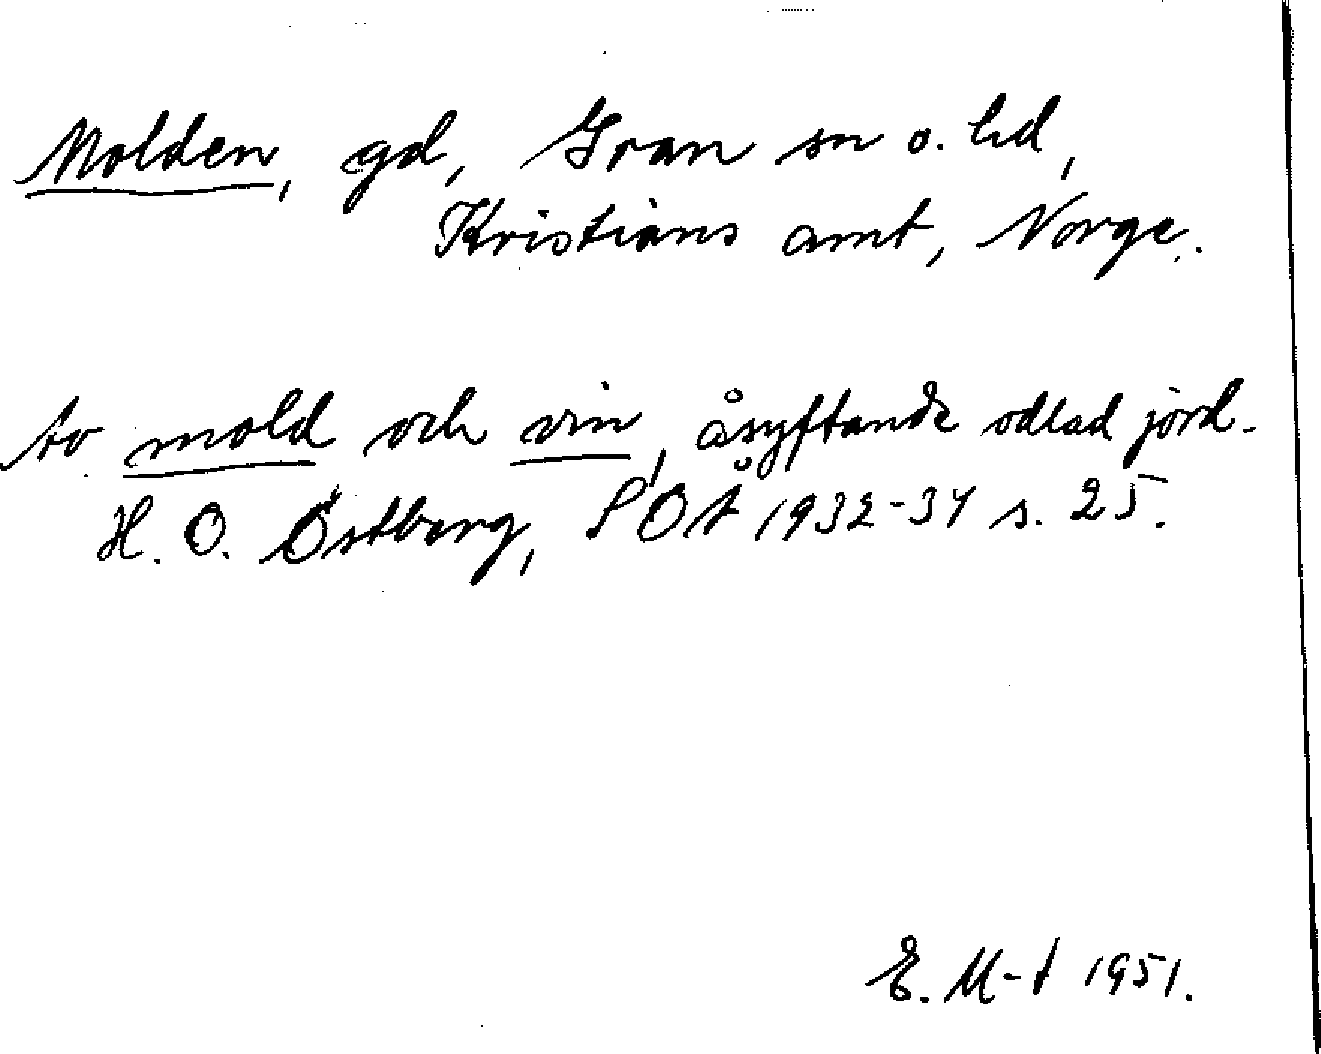 Molden, gd, Gran sn o. hd,
Kristians amt, Norge.
Av mold och vin, åsyftande odlad jord.
H. O. Østberg, SOÅ 1932-34 s. 25.
E. M-t 1951.